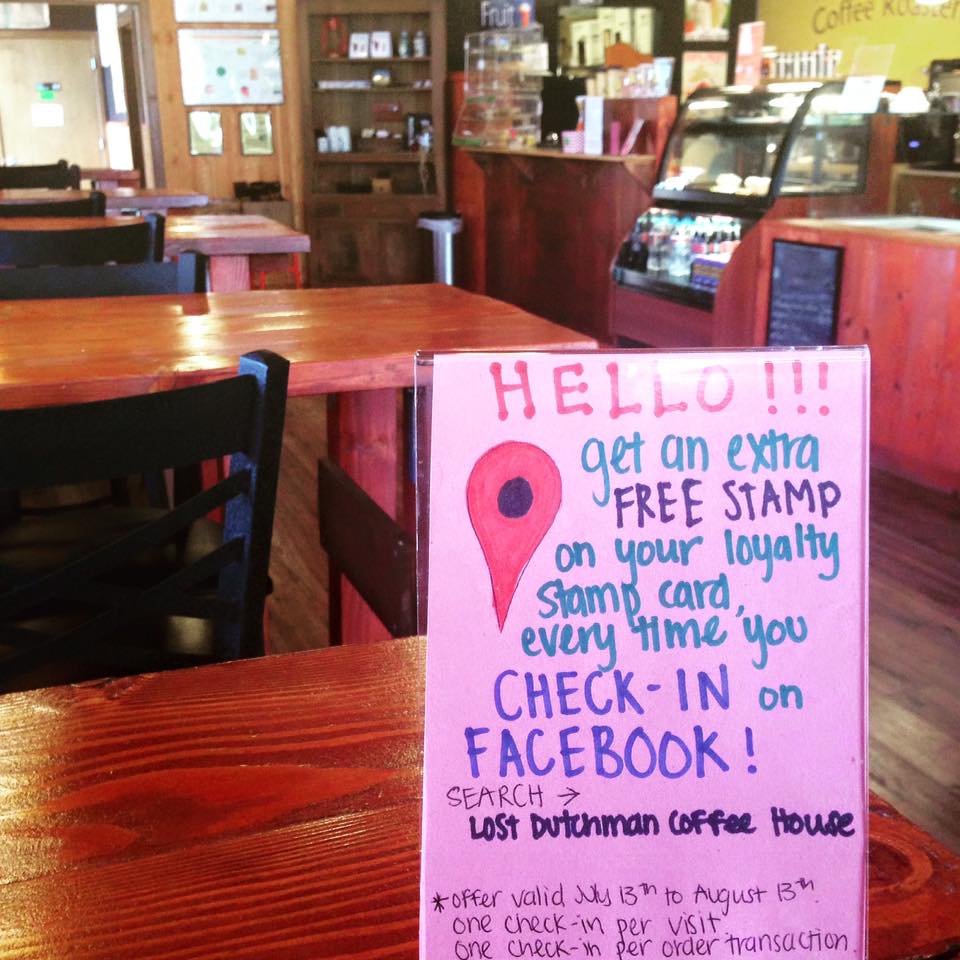 Fruit
Coffee Roaster
HELLO!!!
get an extra
FREE STAMP
on your loyalty
stamp card,
every time you
CHECK-IN on
FACEBOOK!
SEARCH →
LOST DUTCHMAN COFFEE HOUSE
*offer valid July 13th to August 13th.
one check-in per visit
one check-in per order transaction.